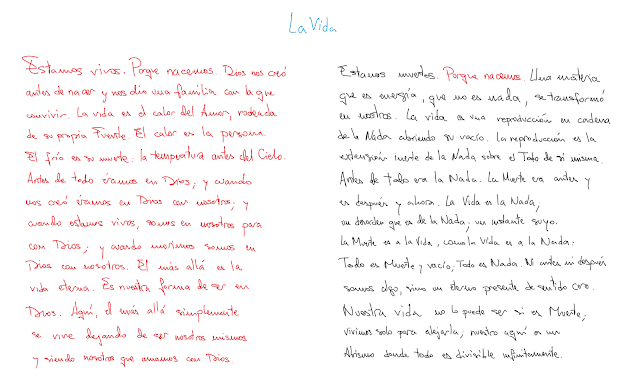 La Vida
Estamos vivos. Porque nacemos. Dios nos creó
antes de nacer y nos dio una familia con la que
convivir. La vida es el calor del Amor, rodeada
de su propia Fuente. El calor es la persona.
El frío es su muerte: la temperatura antes del Cielo.
Antes de todo éramos en Dios; y cuando
nos creó éramos en Dios con nosotros; y
cuando estamos vivos, somos en nosotros para
con Dios; y cuando morimos somos en
Dios con nosotros. El más allá es la
vida eterna. Es nuestra forma de ser en
Dios. Aquí, el más allá simplemente
se vive dejando de ser nosotros mismos
y siendo nosotros que amamos con Dios.
Estamos muertos. Porque nacemos. Una materia
que es energía, que no es nada, se transformó
en nosotros. La vida es una reproducción en cadena
de la Nada abriendo su vacío. La reproducción es la
extensión inerte de la Nada sobre el Todo de sí misma.
Antes de Todo era la Nada. La Muerte era antes y
es después y ahora. La Vida es la Nada,
un derecho que es de la Nada; un instante suyo.
La Muerte es a la Vida, como la Vida es a la Nada:
Todo es Muerte y vacío, Todo es Nada. Ni antes ni después
somos algo, sino un eterno presente de sentido cero.
Nuestra vida no lo puede ser si es Muerte;
vivimos solo para alejarla; nuestro aquí es un
Abismo donde todo es divisible infinitamente.